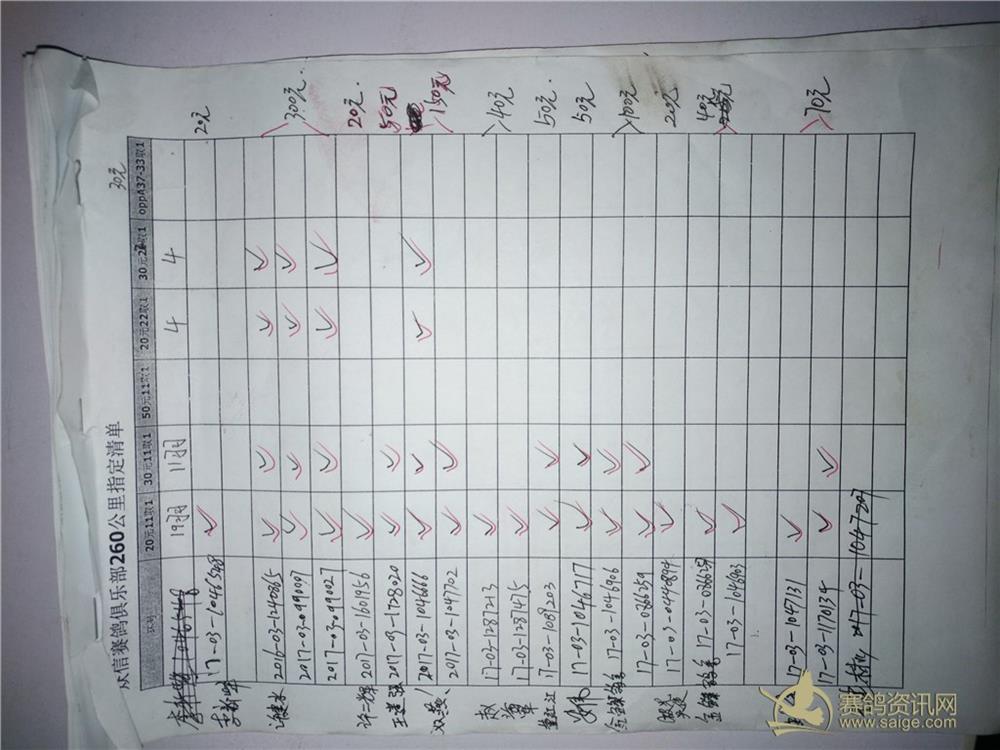 从信赛鸽俱乐部260公里指定清单
30元
环号 20元11取1 30元11取1 50元11取1 20元22取1 30元22取1 oppA37-33取1
19羽 11羽 4 4
17-03-1046528 ✓ 20元
2016-03-1240865 ✓ ✓ ✓ ✓
2017-03-099097 ✓ ✓ ✓ ✓ 300元.
2017-03-099027 ✓ ✓ ✓ ✓
许一辉 2017-03-1601956 ✓ 20元.
2017-03-1728020 ✓ ✓ 50元
2017-03-1046666 ✓ ✓ ✓ ✓
2017-03-1047702 ✓ ✓ 150元
赵 17-03-1287213 ✓ 40元
17-03-1287475 ✓
17-03-1081203 ✓ ✓ 50元.
17-03-1046717 ✓ ✓ 50元
17-03-1046906 ✓ ✓
17-03-026259 ✓ ✓ 100元
17-03-0440894 ✓ 20元
17-03-026629 ✓ 40元
17-03-1046903 ✓
17-03-1047131 ✓
17-03-1170134 ✓ ✓ 70元
2017-03-1047207
赛鸽资讯网
www.saige.com